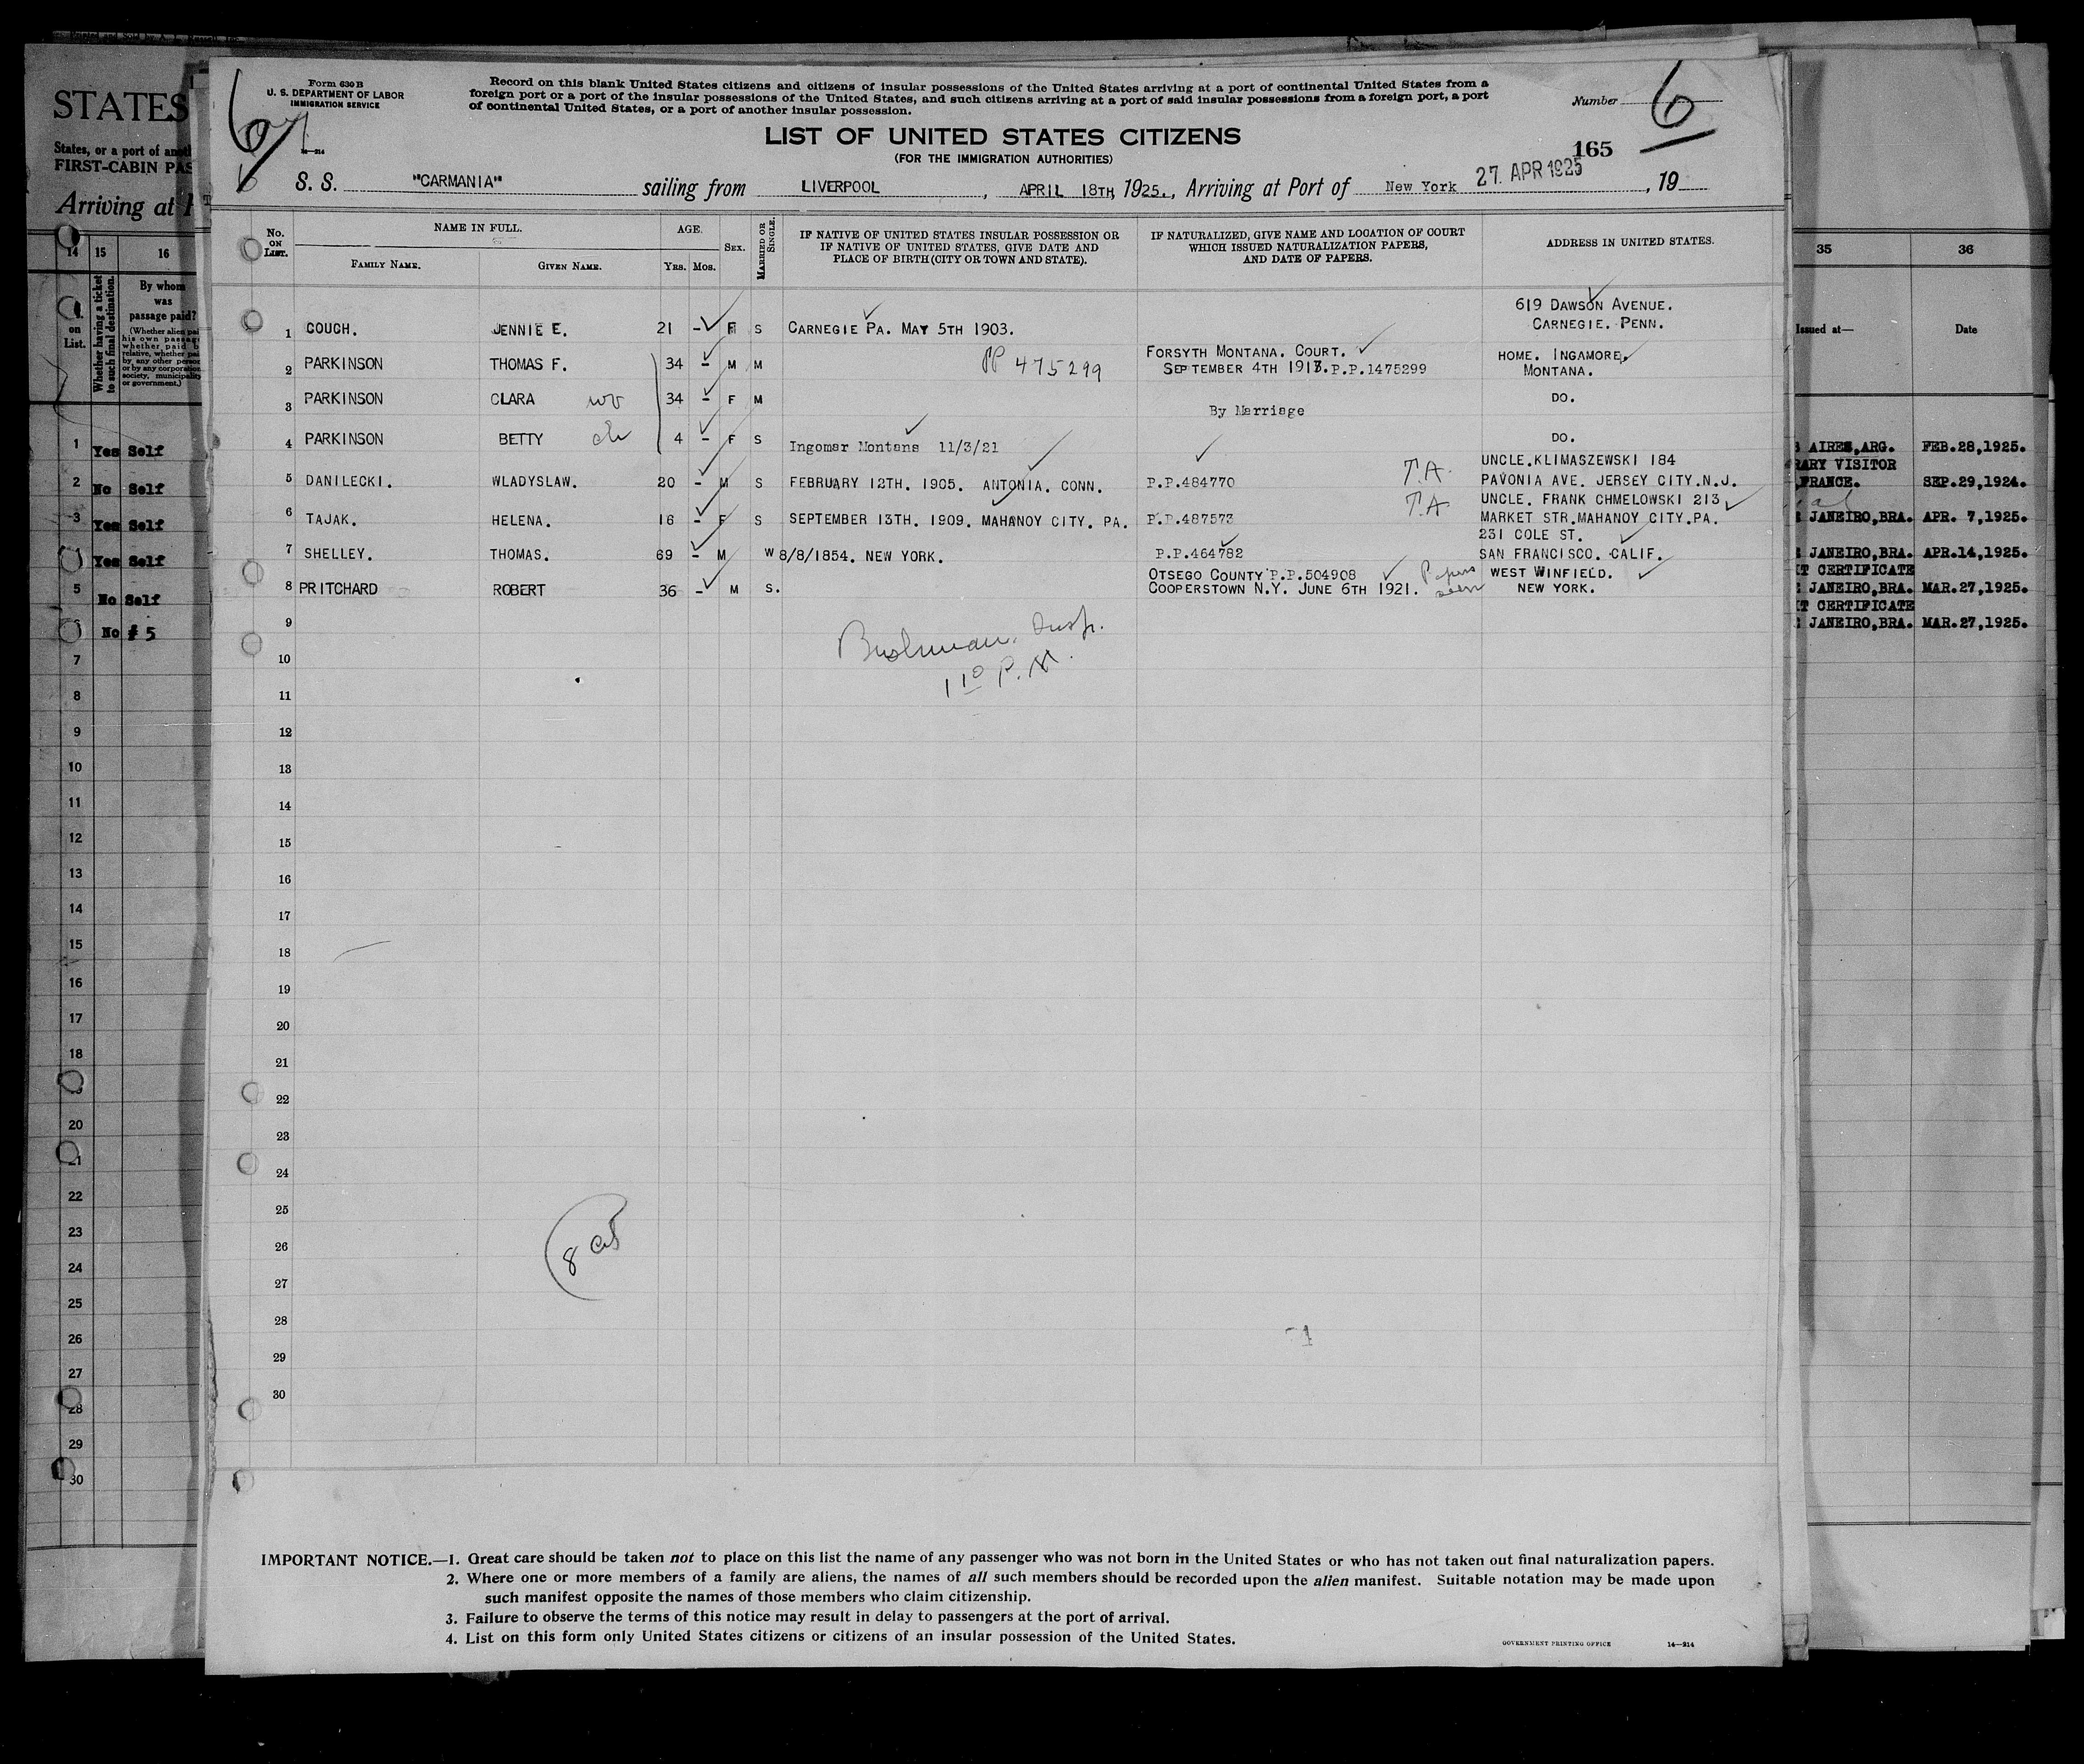 Form 630 B
U. S. DEPARTMENT OF LABOR
IMMIGRATION SERVICE
Record on this blank United States citizens and citizens of insular possessions of the United States arriving at a port of continental United States from a
foreign port or a port of the insular possessions of the United States, and such citizens arriving at a port of said insular possessions from a foreign port, a port
of continental United States, or a port of another insular possession.
Number 6
14—214
LIST OF UNITED STATES CITIZENS
(FOR THE IMMIGRATION AUTHORITIES)
165
S. S. "CARMANIA" sailing from LIVERPOOL, APRIL 18TH, 1925., Arriving at Port of New York 27. APR 1925, 19
No. ON LIST.
NAME IN FULL.
FAMILY NAME. GIVEN NAME.
AGE.
YRS. MOS.
SEX.
MARRIED OR SINGLE.
IF NATIVE OF UNITED STATES INSULAR POSSESSION OR
IF NATIVE OF UNITED STATES, GIVE DATE AND
PLACE OF BIRTH (CITY OR TOWN AND STATE).
IF NATURALIZED, GIVE NAME AND LOCATION OF COURT
WHICH ISSUED NATURALIZATION PAPERS,
AND DATE OF PAPERS.
ADDRESS IN UNITED STATES.
619 DAWSON AVENUE.
1 COUCH. JENNIE E. 21 - F S CARNEGIE PA. MAY 5TH 1903. CARNEGIE. PENN.
FORSYTH MONTANA. COURT. HOME. INGAMORE,
2 PARKINSON THOMAS F. 34 - M M PP 475299 SEPTEMBER 4TH 1913. P.P.1475299 MONTANA.
3 PARKINSON CLARA 34 - F M By Marriage DO.
4 PARKINSON BETTY ch 4 - F S Ingomar Montana 11/3/21 DO.
UNCLE. KLIMASZEWSKI 184
5 DANILECKI. WLADYSLAW. 20 - M S FEBRUARY 12TH. 1905. ANTONIA. CONN. P.P.484770 T.A. PAVONIA AVE. JERSEY CITY.N.J.
UNCLE. FRANK CHMELOWSKI 213
6 TAJAK. HELENA. 16 - F S SEPTEMBER 13TH. 1909. MAHANOY CITY. PA. P.P.487573 T.A. MARKET STR.MAHANOY CITY.PA.
231 COLE ST.
7 SHELLEY. THOMAS. 69 - M W 8/8/1854. NEW YORK. P.P.464782 SAN FRANCISCO. CALIF.
OTSEGO COUNTY P.P.504908 Papers WEST WINFIELD.
8 PRITCHARD ROBERT 36 - M S. COOPERSTOWN N.Y. JUNE 6TH 1921. seen NEW YORK.
9
Bushman. Insp.
10
1 10 P. M.
11
12
13
14
15
16
17
18
19
20
21
22
23
24
25
26
8
27
28
29
30
IMPORTANT NOTICE.—1. Great care should be taken not to place on this list the name of any passenger who was not born in the United States or who has not taken out final naturalization papers.
2. Where one or more members of a family are aliens, the names of all such members should be recorded upon the alien manifest. Suitable notation may be made upon
such manifest opposite the names of those members who claim citizenship.
3. Failure to observe the terms of this notice may result in delay to passengers at the port of arrival.
4. List on this form only United States citizens or citizens of an insular possession of the United States.
GOVERNMENT PRINTING OFFICE 14—214
STATES
States, or a port of
FIRST-CABIN
Arriving at
14 15 16
on List.
Whether having a ticket to such final destination.
By whom
was
passage paid?
1 Yes Self
2 No Self
3 Yes Self
Yes Self
5 No Self
No # 5
7
8
9
10
11
12
13
14
15
16
17
18
20
22
23
24
25
26
27
28
29
30
35 36
Issued at— Date
AIRES,ARG. FEB.28,1925.
VISITOR
FRANCE. SEP.29,1924.
JANEIRO,BRA. APR. 7,1925.
JANEIRO,BRA. APR.14,1925.
CERTIFICATE
JANEIRO,BRA. MAR.27,1925.
CERTIFICATE
JANEIRO,BRA. MAR.27,1925.